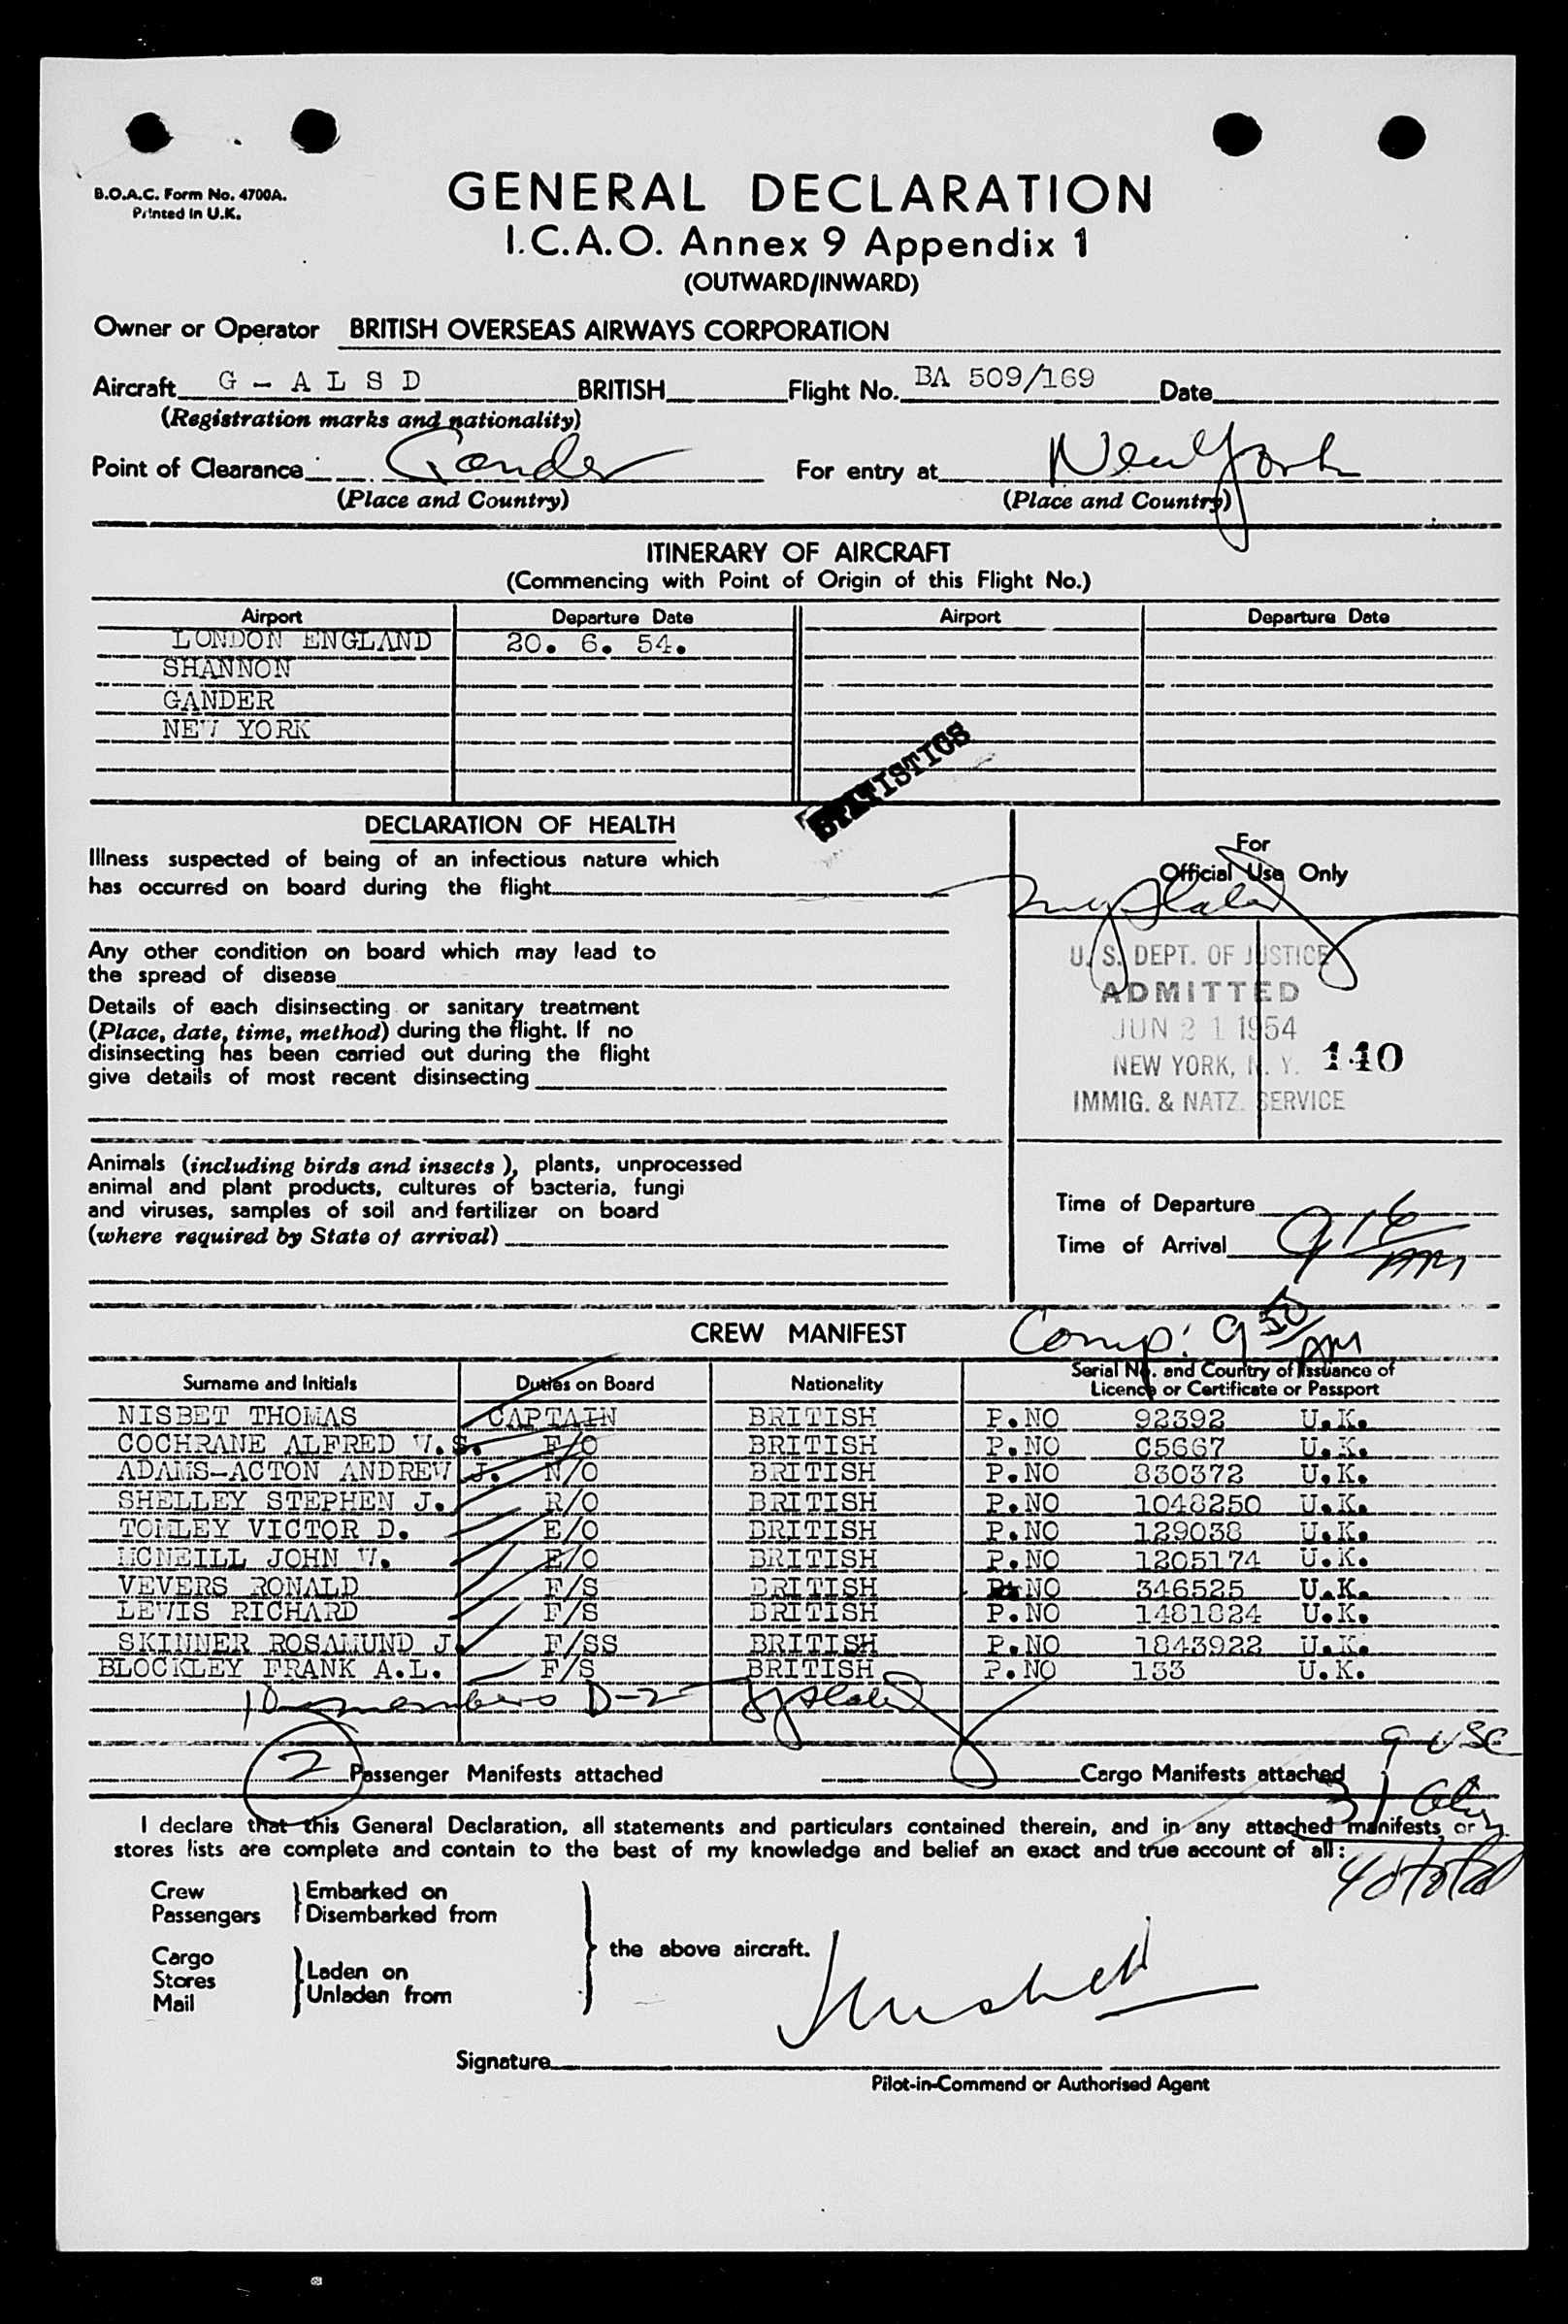 B.O.A.C. Form No. 4700A.
Printed in U.K.
GENERAL DECLARATION
I.C.A.O. Annex 9 Appendix 1
(OUTWARD/INWARD)
Owner or Operator BRITISH OVERSEAS AIRWAYS CORPORATION
Aircraft G - A L S D BRITISH Flight No. BA 509/169 Date
(Registration marks and nationality)
Point of Clearance Gander For entry at New York
(Place and Country) (Place and Country)
ITINERARY OF AIRCRAFT
(Commencing with Point of Origin of this Flight No.)
Airport Departure Date Airport Departure Date
LONDON ENGLAND 20. 6. 54.
SHANNON
GANDER
NEW YORK
STATISTICS
DECLARATION OF HEALTH
Illness suspected of being of an infectious nature which
has occurred on board during the flight
Any other condition on board which may lead to
the spread of disease
Details of each disinsecting or sanitary treatment
(Place, date, time, method) during the flight. If no
disinsecting has been carried out during the flight
give details of most recent disinsecting
Animals (including birds and insects), plants, unprocessed
animal and plant products, cultures of bacteria, fungi
and viruses, samples of soil and fertilizer on board
(where required by State of arrival)
For
Official Use Only
U. S. DEPT. OF JUSTICE
ADMITTED
JUN 21 1954
NEW YORK, N. Y. 140
IMMIG. & NATZ. SERVICE
Time of Departure
Time of Arrival 9 16 AM
Comp: 9 30 AM
CREW MANIFEST
Surname and Initials Duties on Board Nationality Serial No. and Country of Issuance of
Licence or Certificate or Passport
NISBET THOMAS CAPTAIN BRITISH P.NO 92392 U.K.
COCHRANE ALFRED W.S. F/O BRITISH P.NO C5667 U.K.
ADAMS-ACTON ANDREW J. N/O BRITISH P.NO 830372 U.K.
SHELLEY STEPHEN J. R/O BRITISH P.NO 1048250 U.K.
TOMLEY VICTOR D. E/O BRITISH P.NO 129038 U.K.
MCNEILL JOHN W. E/O BRITISH P.NO 1205174 U.K.
VEVERS RONALD F/S BRITISH P.NO 346525 U.K.
LEWIS RICHARD F/S BRITISH P.NO 1481824 U.K.
SKINNER ROSAMUND J. F/SS BRITISH P.NO 1843922 U.K.
BLOCKLEY FRANK A.L. F/S BRITISH P.NO 133 U.K.
10 members D-2
9 USC
2 Passenger Manifests attached Cargo Manifests attached
31
I declare that this General Declaration, all statements and particulars contained therein, and in any attached manifests or
stores lists are complete and contain to the best of my knowledge and belief an exact and true account of all:
40 total
Crew Embarked on
Passengers Disembarked from
the above aircraft.
Cargo
Stores Laden on
Mail Unladen from
Signature
Pilot-in-Command or Authorised Agent